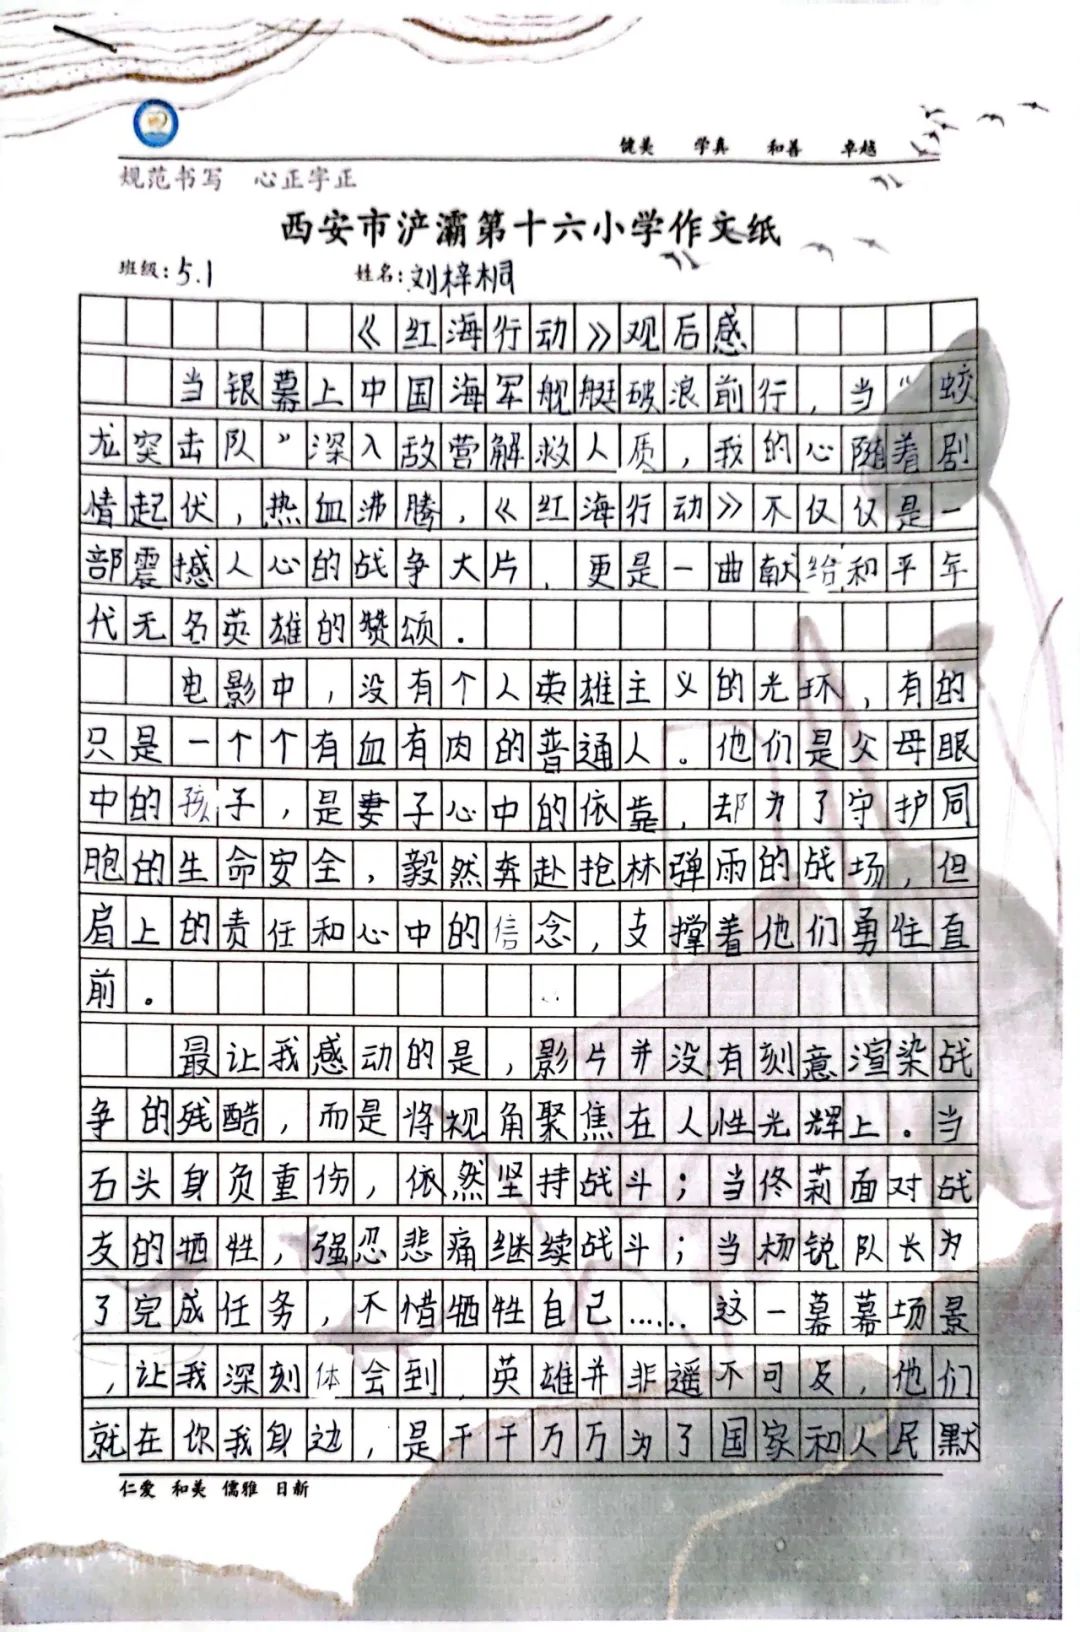 健美 学真 和善 卓越
规范书写 心正字正
西安市浐灞第十六小学作文纸
班级:5.1 姓名:刘梓桐
《红海行动》观后感
当银幕上中国海军舰艇破浪前行,当“蛟
龙突击队”深入敌营解救人质,我的心随着剧
情起伏,热血沸腾,《红海行动》不仅仅是一
部震撼人心的战争大片,更是一曲献给和平年
代无名英雄的赞颂.
电影中,没有个人英雄主义的光环,有的
只是一个个有血有肉的普通人。他们是父母眼
中的孩子,是妻子心中的依靠,却为了守护同
胞的生命安全,毅然奔赴抢林弹雨的战场,但
肩上的责任和心中的信念,支撑着他们勇往直
前。
最让我感动的是,影片并没有刻意渲染战
争的残酷,而是将视角聚焦在人性光辉上.当
石头身负重伤,依然坚持战斗;当佟莉面对战
友的牺牲,强忍悲痛继续战斗;当杨锐队长为
了完成任务,不惜牺牲自己……这一幕幕场景
,让我深刻体会到,英雄并非遥不可及,他们
就在你我身边,是千千万万为了国家和人民默
仁爱 和美 儒雅 日新